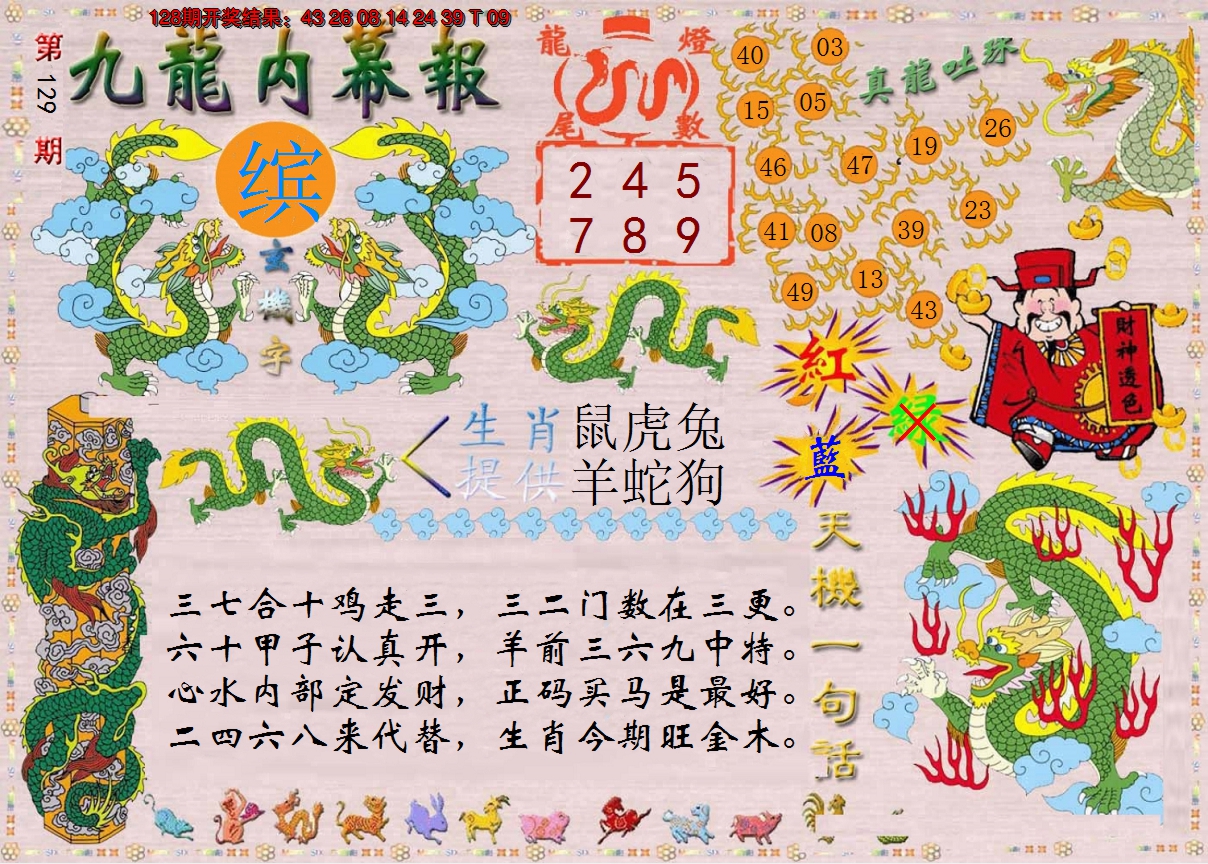 128期开奖结果：43 26 08 14 24 39 T 09
第129期
九龍内幕報
缤
玄機字
龍燈
尾數
2 4 5
7 8 9
真龍吐珠
40 03
15 05
19 26
46 47
41 08 39 23
49 13 43
財神透色
紅
绿
藍
生肖 鼠虎兔
提供 羊蛇狗
天機一句話
三七合十鸡走三，三二门数在三更。
六十甲子认真开，羊前三六九中特。
心水内部定发财，正码买马是最好。
二四六八来代替，生肖今期旺金木。